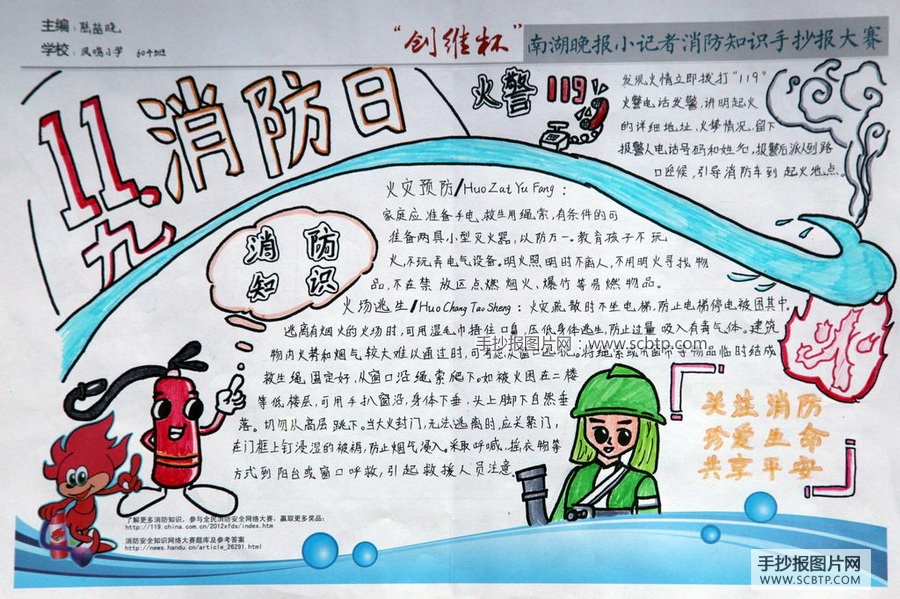 主编：
学校：凤鸣小学 604班
"创维杯"南湖晚报小记者消防知识手抄报大赛
11.九消防日
火警119
发现火情立即拨打"119"
火警电话发警，讲明起火
的详细地址，火势情况，留下
报警人电话号码和姓名，报警后派人到路
口迎候，引导消防车到 起火地点。
消防
知识
火灾预防/Huo Zai Yu Fang：
家庭应准备手电，救生用绳索，有条件的可
准备两具小型灭火器，以防万一。教育孩子不玩
火，不玩弄电气设备。明火照明时不离人，不用明火寻找物
品，不在禁放区点燃烟火、爆竹等易燃物品。
火场逃生/Huo Chang Tao Sheng：火灾疏散时不坐电梯，防止电梯停电被困其中，
逃离有烟火的火场时，可用湿毛巾捂住口鼻，压低身体逃生，防止过量吸入有毒气体。建筑
物内火势和烟气较大难以通过时，可考虑从窗口 将绳索或 等物品临时结成
救生绳固定好，从窗口沿绳索爬下。如被火困在二楼
等低楼层，可用手扒窗沿，身体下垂，头上脚下自然垂
落。切勿从高层跳下。当大火封门，无法逃离时，应关紧门，
在门框上钉浸湿的被褥，防止烟气侵入。采取呼喊、摇衣物等
方式到阳台或窗口呼救，引起救援人员注意
手抄报图片网：www.scbtp.com
关注消防
珍爱生命
共享平安
了解更多消防知识，参与全民消防安全网络大赛，赢取更多奖品：
http://119.china.com.cn/2012xfds/index.htm
消防安全知识网络大赛题库及参考答案
http://news.handu.cn/article_26291.html
手抄报图片网
WWW.SCBTP.COM